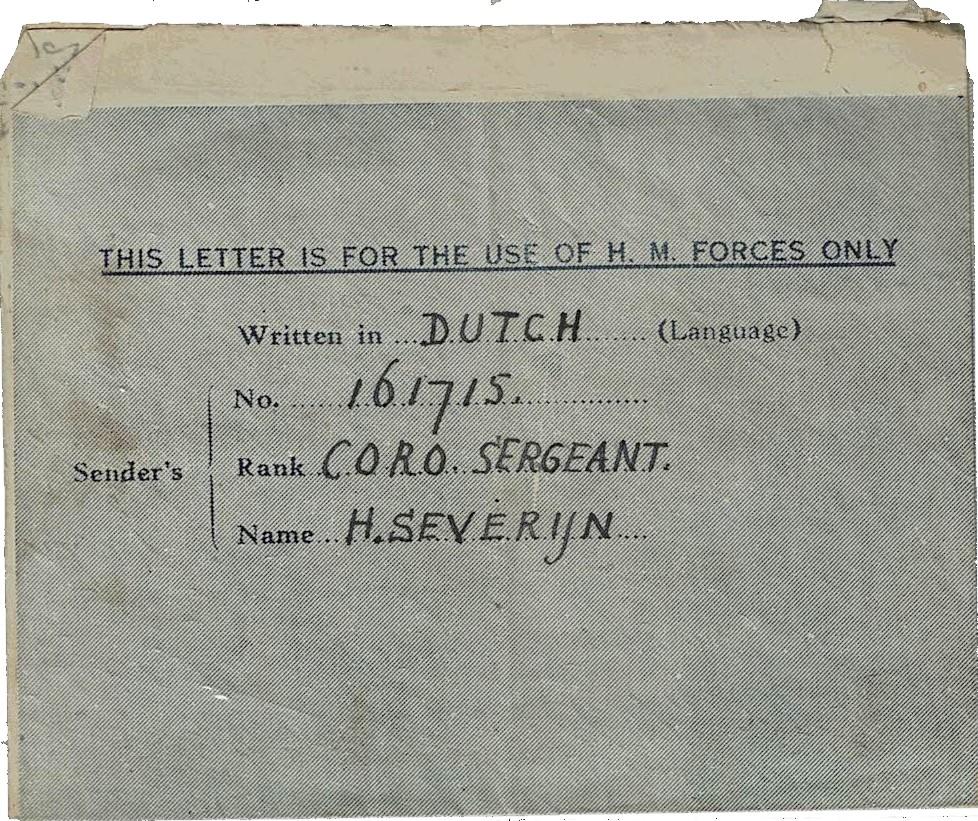 THIS LETTER IS FOR THE USE OF H. M. FORCES ONLY
Written in ...DUTCH....... (Language)
No. ......161715...............
Sender's
Rank CORO. SERGEANT.
Name...H.SEVERIJN....